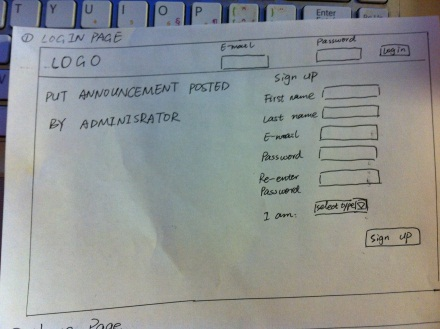 T Y U I O P Enter
① LOGIN PAGE
E-mail Password
LOGO Login
PUT ANNOUNCEMENT POSTED
BY ADMINISRATOR
Sign up
First name
Last name
E-mail
Password
Re-enter
Password
I am: select type
Sign up
Page